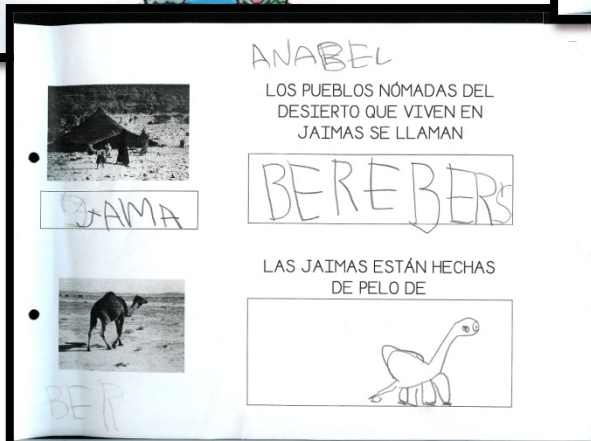 ANABEL
LOS PUEBLOS NÓMADAS DEL
DESIERTO QUE VIVEN EN
JAIMAS SE LLAMAN
JAMA
BEREBERS
LAS JAIMAS ESTÁN HECHAS
DE PELO DE
BER